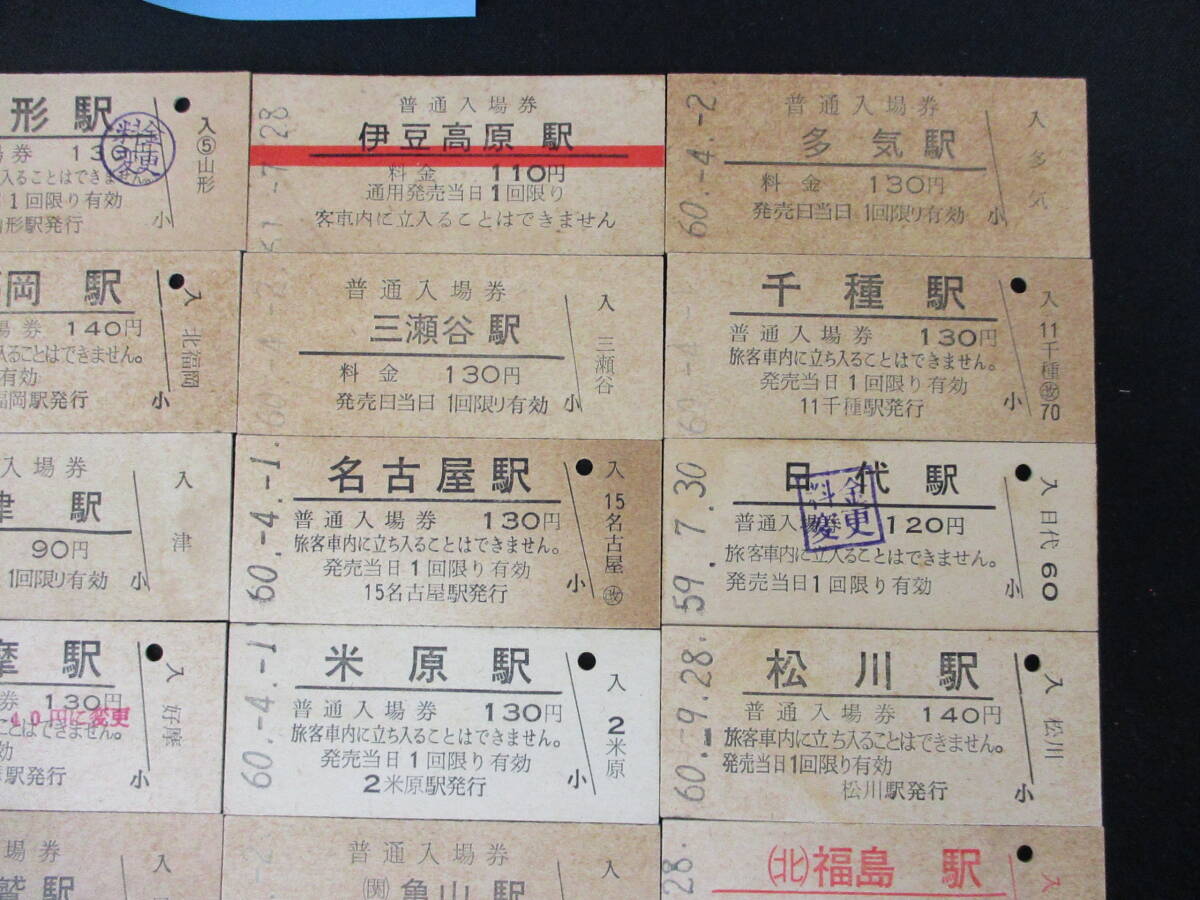 形駅
料金変更
場券 13
入ることはできません。
1回限り有効
形駅発行
小
入
⑤山形
61.-7.28
普通入場券
伊豆高原駅
料金 110円
通用発売当日1回限り
客車内に立入ることはできません
60.-4.-2
普通入場券
多気駅
料金 130円
発売日当日 1回限り有効
小
入
多気
岡駅
場券 140円
入ることはできません。
有効
福岡駅発行
小
入
北福岡
普通入場券
三瀬谷駅
料金 130円
発売日当日 1回限り有効
小
入
三瀬谷
千種駅
普通入場券 130円
旅客車内に立ち入ることはできません。
発売当日1回限り有効
11千種駅発行
小
入
11千種㊰70
入場券
津駅
90円
1回限り有効
入
津
60.-4.-1.
名古屋駅
普通入場券 130円
旅客車内に立ち入ることはできません。
発売当日1回限り有効
15名古屋駅発行
小
入
15名古屋
59.7.30
目代駅
料金変更
普通入場券 120円
旅客車内に立ち入ることはできません。
発売当日1回限り有効
小
入
目代60
摩駅
券 130円
40円に変更
ことはできません。
効
駅発行
小
入
好摩
60.-4.-1
米原駅
普通入場券 130円
旅客車内に立ち入ることはできません。
発売当日1回限り有効
2米原駅発行
小
入
2米原
60.-9.28.
松川駅
普通入場券 140円
旅客車内に立ち入ることはできません。
発売当日1回限り有効
松川駅発行
小
入
松川
場券
鷲駅
入
普通入場券
㈼亀山駅
入
28.
㈫福島駅
入